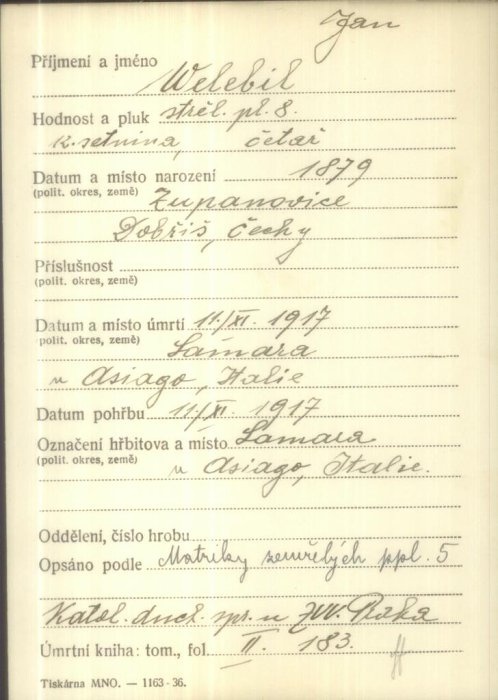 Jan
Příjmení a jméno
Welebil
Hodnost a pluk střel. pl. 8.
k. setnina, četař
Datum a místo narození 1879
(polit. okres, země) Županovice
Dobříš, Čechy
Příslušnost
(polit. okres, země)
Datum a místo úmrtí 11./XI. 1917
(polit. okres, země) Lamara
u Asiago, Italie
Datum pohřbu 11/XI. 1917
Označení hřbitova a místo Lamara
(polit. okres, země) u Asiago, Italie.
Oddělení, číslo hrobu
Opsáno podle Matriky zemřelých ppl. 5
Katol. duch. spr. u
Úmrtní kniha: tom., fol. II. 183.
Tiskárna MNO. — 1163-36.